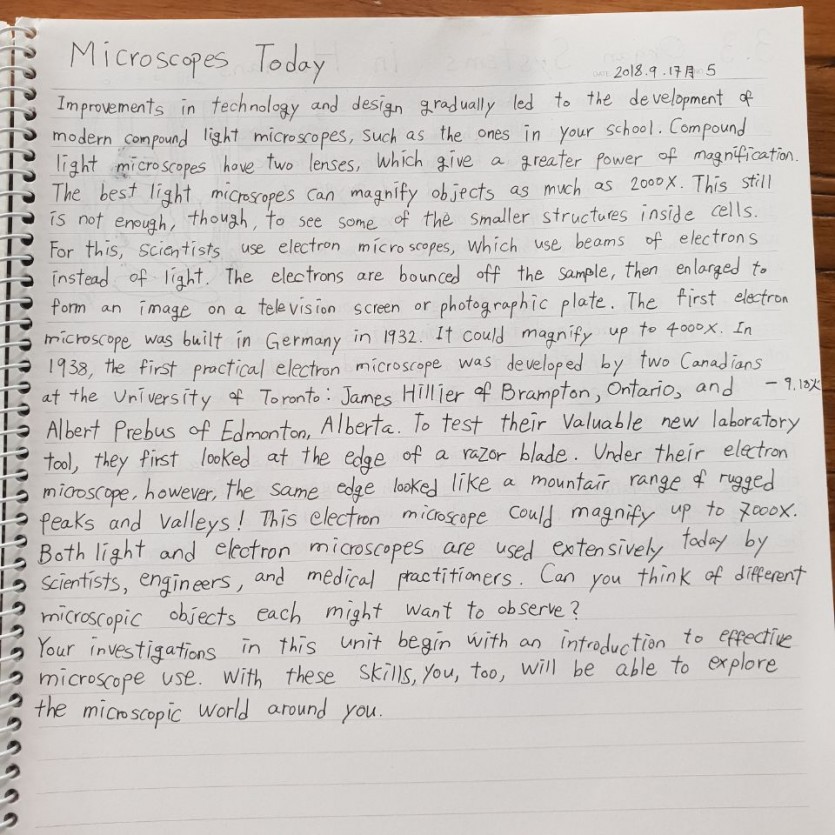 Microscopes Today
2018.9.17月 5
Improvements in technology and design gradually led to the development of
modern compound light microscopes, such as the ones in your school. Compound
light microscopes have two lenses, which give a greater power of magnification.
The best light microscopes can magnify objects as much as 2000X. This still
is not enough, though, to see some of the smaller structures inside cells.
For this, scientists use electron microscopes, which use beams of electrons
instead of light. The electrons are bounced off the sample, then enlarged to
form an image on a television screen or photographic plate. The first electron
microscope was built in Germany in 1932. It could magnify up to 4000X. In
1938, the first practical electron microscope was developed by two Canadians
at the University of Toronto: James Hillier of Brampton, Ontario, and - 9.18火
Albert Prebus of Edmonton, Alberta. To test their valuable new laboratory
tool, they first looked at the edge of a razor blade. Under their electron
microscope, however, the same edge looked like a mountain range of rugged
peaks and valleys! This electron microscope could magnify up to 7000X.
Both light and electron microscopes are used extensively today by
scientists, engineers, and medical practitioners. Can you think of different
microscopic objects each might want to observe?
Your investigations in this unit begin with an introduction to effective
microscope use. With these skills, you, too, will be able to explore
the microscopic world around you.